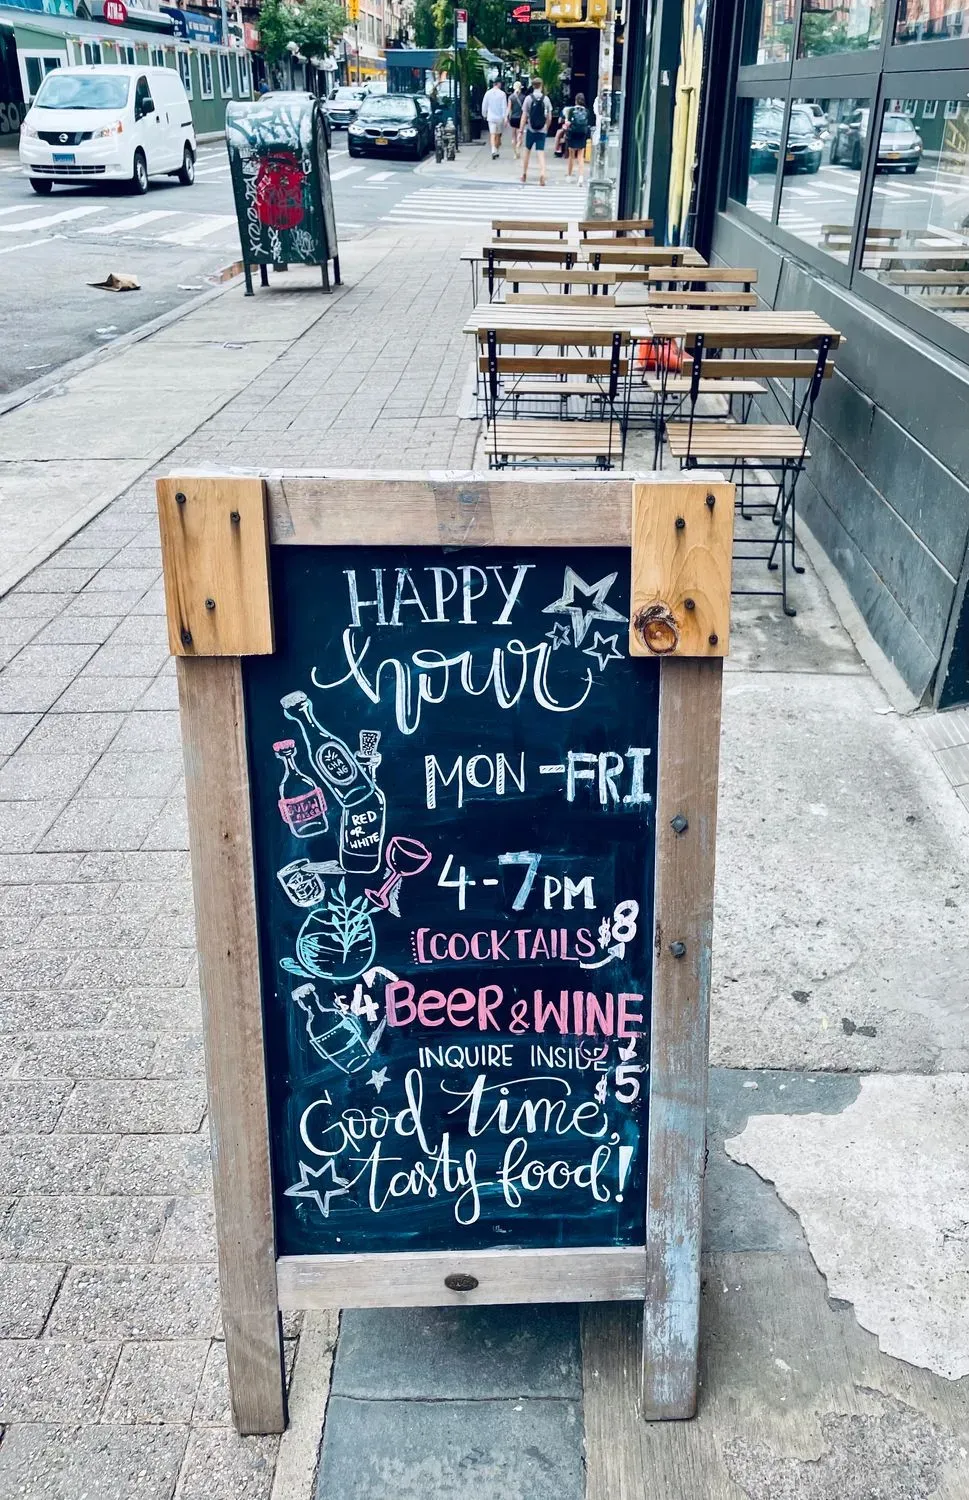 ATM
HAPPY
hour
MON-FRI
CHA
NG
RED
OR
WHITE
4-7PM
[COCKTAILS $8
$4 BeeR & WINE
INQUIRE INSIDE
$5
Good time,
tasty food!